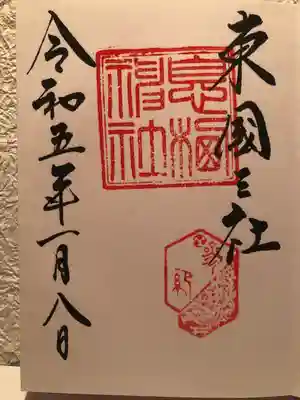 東國三社
息栖神社
令和五年一月八日